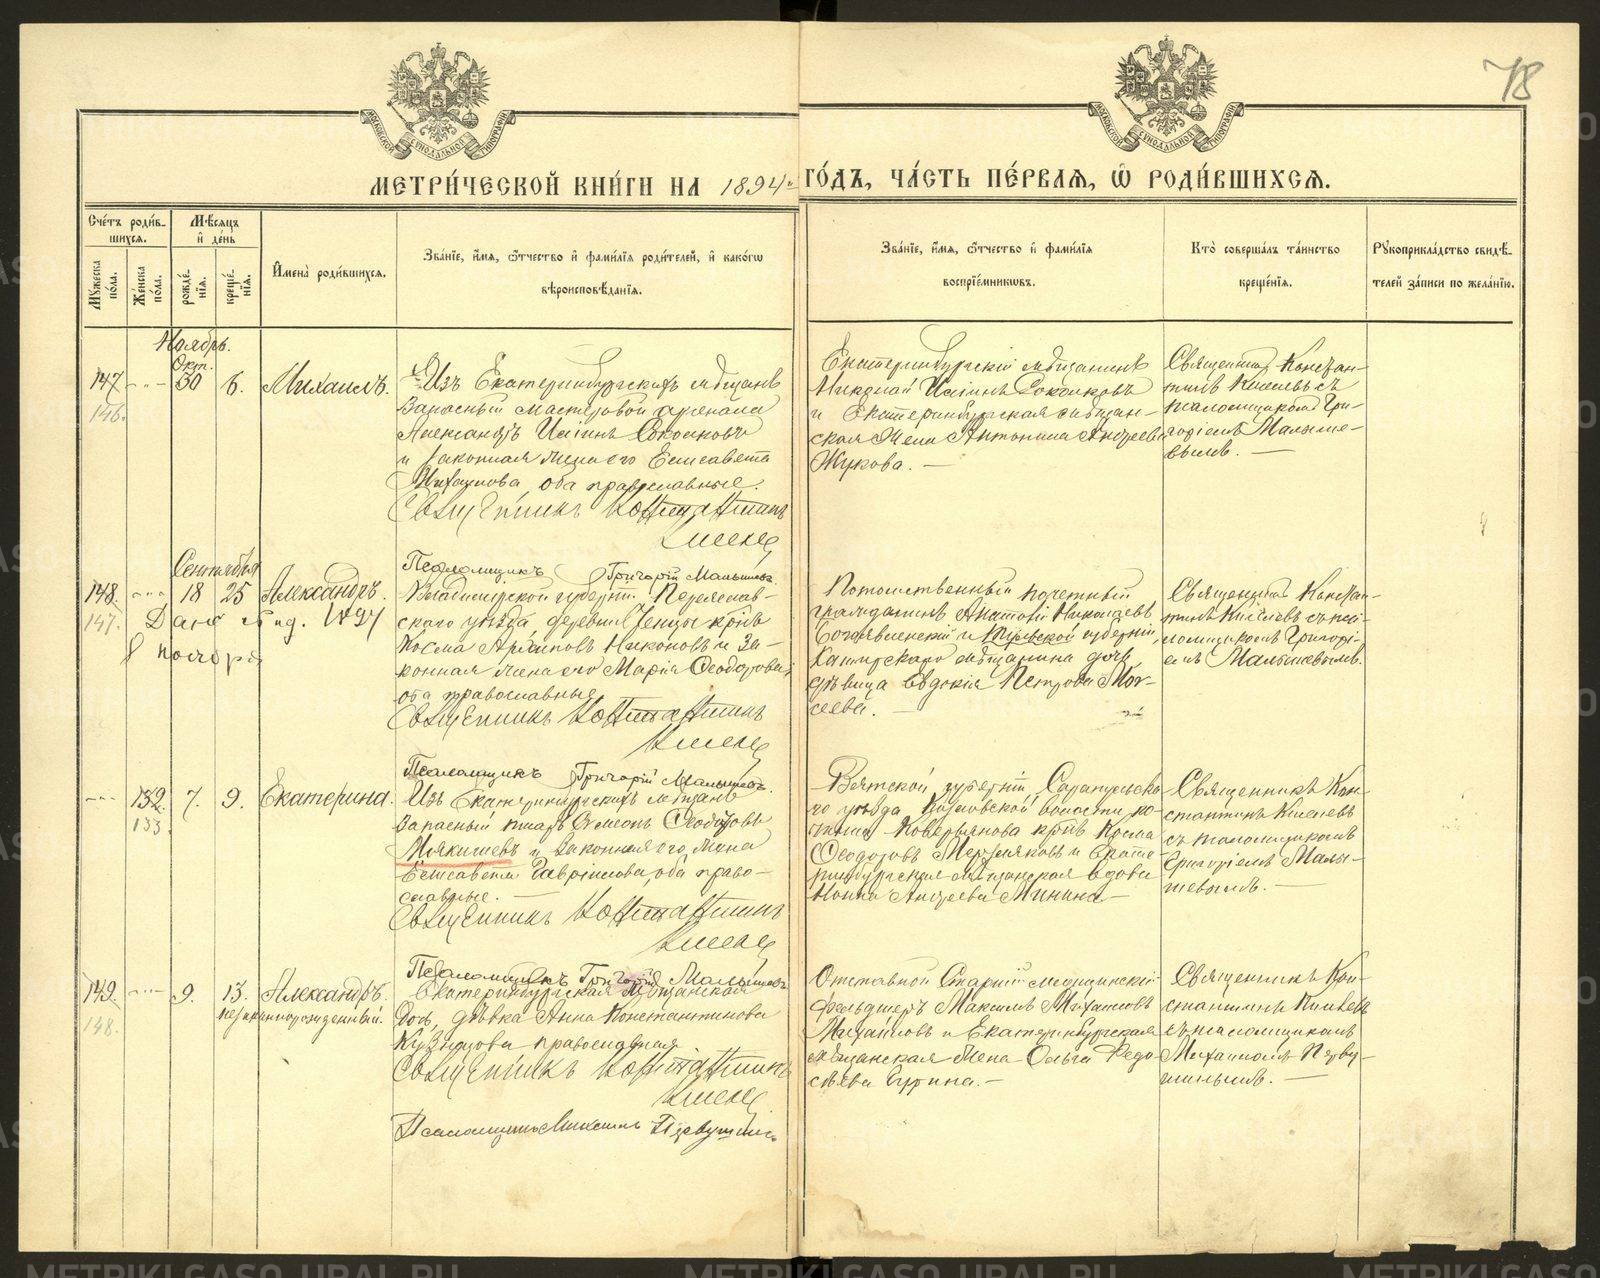 78
МОСКОВСКОЙ СѴНОДАЛЬНОЙ ТИПОГРАФІИ
МОСКОВСКОЙ СѴНОДАЛЬНОЙ ТИПОГРАФІИ
МЕТРИ́ЧЕСКОЙ КНИ́ГИ НА 1894 ГО́ДЪ, ЧА́СТЬ ПЕ́РВАѦ, Ѡ РОДИ́ВШИХСѦ.
Сче́тъ роди́в-
шихсѧ.
Мѣ́сѧцъ
и҆ де́нь
Мꙋ́жеска
по́ла.
Же́нска
по́ла.
рожде́-
нїѧ.
креще́-
нїѧ.
И҆мена̀ роди́вшихсѧ.
Зва́нїе, и҆́мѧ, ѻ҆́тчество и҆ фами́лїѧ роди́телей, и҆ како́гѡ
вѣроисповѣ́данїѧ.
Зва́нїе, и҆́мѧ, ѻ҆́тчество и҆ фами́лїѧ
воспрїе́мникѡвъ.
Кто̀ соверша́лъ та́инство
креще́нїѧ.
Рꙋкоприкла́дство свидѣ́-
телей за́писи по жела́нїю.
Ноябрь.
Окт.
147 - - - 30 6. Михаилъ.
146.
Изъ Екатеринбургскихъ мѣщанъ
Запасный мастеровой арсенала
Александръ Исаинъ Соколковъ
и законная жена его Елисавета
Михаилова, оба православные.
Священникъ Константинъ
Киселев
Псаломщикъ Григорій Малышев
Екатеринбургскій мѣщанинъ
Николай Исаинъ Соколковъ
и Екатеринбургская мѣщан-
ская жена Антонина Андреева
Жукова. —
Священникъ Констан-
тинъ Киселевъ съ
псаломщикомъ Гри-
горіемъ Малыше-
вымъ. —
Сентября
148. - - - 18 25 Александръ.
147. Дано свид. №97
8 ноября
Владимірской губерніи Переслав-
скаго уѣзда деревни крѣст.
Косма Никоновъ и за-
конная жена его Марія Ѳеодорова,
оба православные
Священникъ Константинъ
Киселев
Псаломщикъ Григорій Малышев.
Потомственный почетный
гражданинъ Анатолій Николаевъ
Богоявленскій и Тульской губерніи,
Каширскаго мѣщанина дочь
дѣвица Евдокія Петрова Мои-
сеева. —
Священникъ Констан-
тинъ Киселевъ съ пса-
ломщикомъ Григорі-
емъ Малышевымъ.
--- 132 7. 9. Екатерина.
133.
Изъ Екатеринбургскихъ мѣщанъ
Запасный писарь Симеонъ Ѳеодоровъ
Мякишевъ и законная его жена
Елисавета Гавріилова, оба право-
славные. —
Священникъ Константинъ
Киселев
Псаломщикъ Григорій Малышевъ
Вятской губерніи, Сарапульска-
го уѣзда волости по-
чинка крѣст. Косма
Ѳеодоровъ Мерзляковъ и Екате-
ринбургская мѣщанская вдова
Нонна Андреева Минина —
Священникъ Кон-
стантинъ Киселевъ
съ псаломщикомъ
Григоріемъ Малы-
шевымъ. —
149. - - - 9. 13. Александръ.
148. незаконнорожденный.
Екатеринбургская мѣщанская
дочь, дѣвка Анна Константинова
Кузнецова православная
Священникъ Константинъ
Киселев
Псаломщикъ Михаилъ Первушинъ
Отставной Старшій медицинскій
фельдшеръ Максимъ Михаиловъ
Михаиловъ и Екатеринбургская
мѣщанская жена Ольга Ѳедо-
сѣева —
Священникъ Кон-
стантинъ Киселевъ
съ псаломщикомъ
Михаиломъ Перву-
шинымъ. —
METRIKI.GASO-URAL.RU